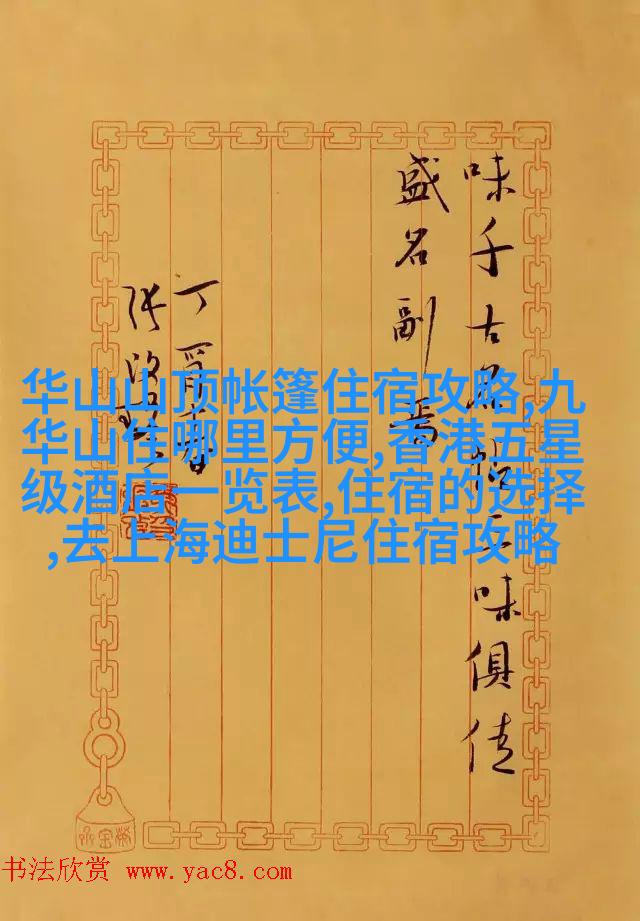 味千古名帖三味俱佳
盛名副焉
丁酉春
张海
华山山顶帐篷住宿攻略,九
华山住哪里方便,香港五星
级酒店一览表,住宿的选择
,去上海迪士尼住宿攻略
书法欣赏 www.yac8.com